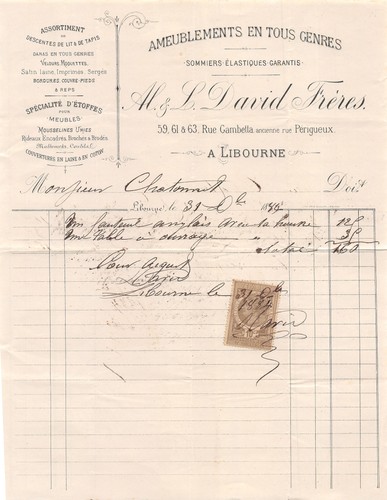 ASSORTIMENT
DE
DESCENTES DE LIT & DE TAPIS
DAMAS EN TOUS GENRES
VELOURS, MOQUETTES,
Satin laine, Imprimés, Sergés
BORDURES, COUVRE-PIEDS
& REPS
SPÉCIALITÉ D'ÉTOFFES
POUR
MEUBLES.
MOUSSELINES UNIES
Rideaux Encadrés, Brochés & Brodés
COUVERTURES EN LAINE & EN COTON
AMEUBLEMENTS EN TOUS GENRES
SOMMIERS ÉLASTIQUES GARANTIS
Al. & L. David Frères.
59, 61 & 63, Rue Gambetta ancienne rue Périgueux.
A LIBOURNE
Monsieur Chatonnet Doit
Libourne, le 31 Xbre
Un fauteuil anglais 125
une table à ouvrage 35
Total 160
Pour acquit
Libourne le